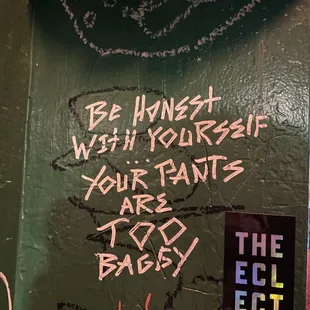 BE HONEST
WITH YOURSELF
...
YOUR PANTS
ARE
TOO
BAGGY
THE
ECL
ECT